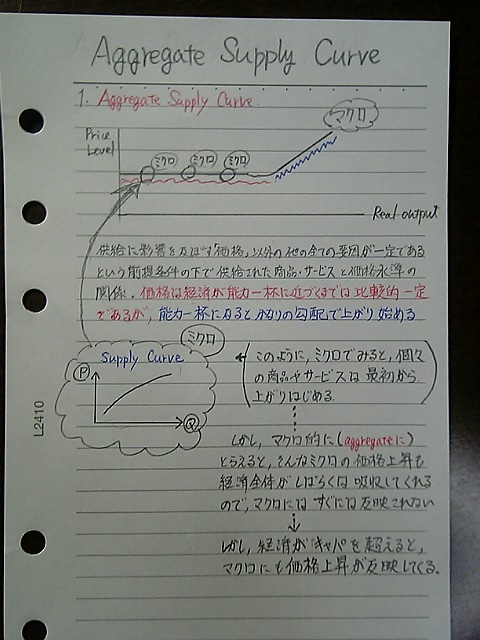 Aggregate Supply Curve
1. Aggregate Supply Curve
マクロ
Price
Level
ミクロ ミクロ ミクロ
Real output
供給に影響を及ぼす「価格」以外の他の全ての要因が一定である
という前提条件の下で供給された商品・サービスと価格水準の
関係。価格は経済が能力一杯に近づくまでは比較的一定
であるが、能力一杯になるとかなりの勾配で上がり始める
ミクロ
Supply Curve
P
Q
このように、ミクロでみると、個々
の商品やサービスは最初から
上がりはじめる。
しかし、マクロ的に(aggregateに)
とらえると、そんなミクロの価格上昇も
経済全体がしばらくは吸収してくれる
ので、マクロにはすぐには反映されない
しかし、経済がキャパを超えると、
マクロにも価格上昇が反映してくる。
L2410